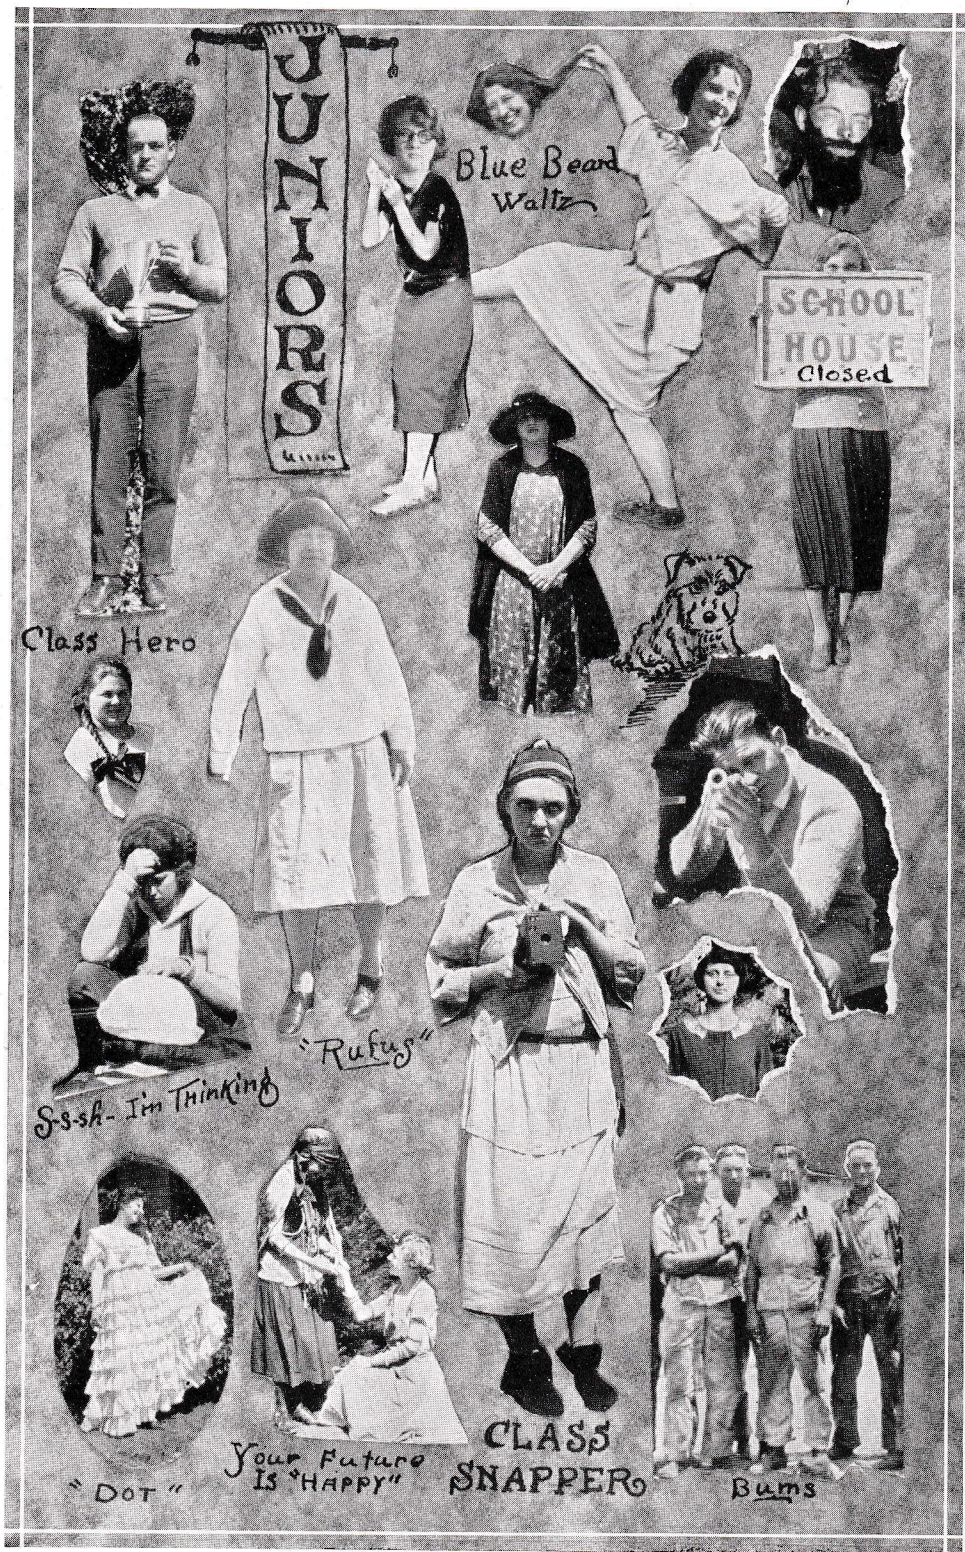 JUNIORS
Blue Beard
Waltz
SCHOOL
HOUSE
Closed
Class Hero
"Rufus"
S-s-sh- I'm Thinking
"DOT"
Your Future
Is "HAPPY"
CLASS
SNAPPER
Bums